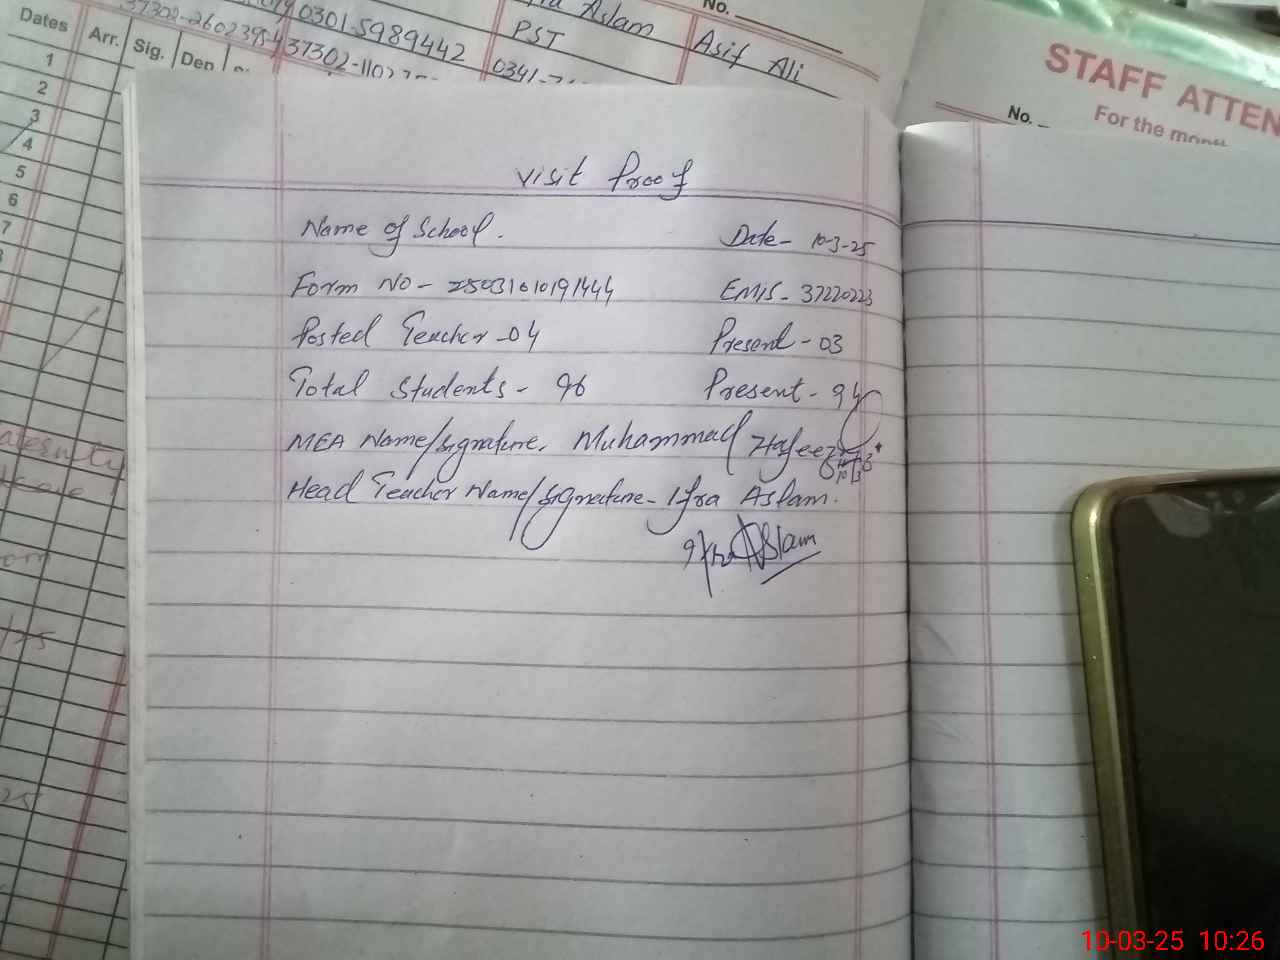 Dates Arr. Sig. Dep
1
2
3
4
5
6
7
0301-5989442
PST
Aslam
No.
Asif Ali
0341-
STAFF ATTEN
No.
For the month
Visit Proof
Name of School. Date- 10-3-25
Form No- 25031010191444 EMIS- 37220223
Posted Teacher-04 Present-03
Total Students- 96 Present-94
MEA Name/signature. Muhammad Hafeez
Head Teacher Name/signature- Ifra Aslam.
Ifra Aslam
10-03-25 10:26